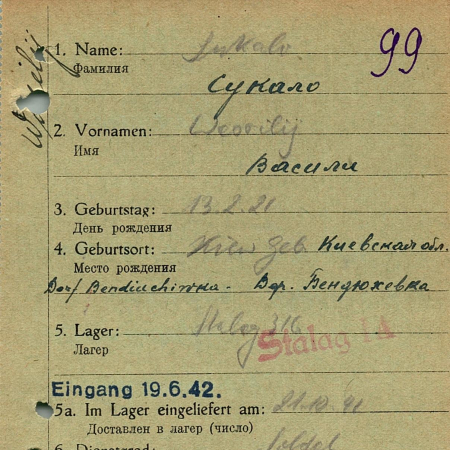 99
1. Name: Sukalo
Фамилия
Сукало
2. Vornamen: Wassilij
Имя
Васили
3. Geburtstag: 13.2.21
День рождения
4. Geburtsort: Kiew Geb. Киевская обл.
Место рождения
Dorf Bendiuchiwka - Дер. Бендюхевка
5. Lager: Stalag 316
Лагер
Stalag
Eingang 19.6.42.
5a. Im Lager eingeliefert am: 21.10.41
Доставлен в лагер (число)
Soldat